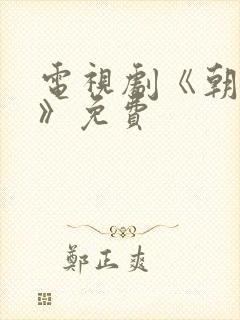 電視劇《朝
》免費
鄭正爽